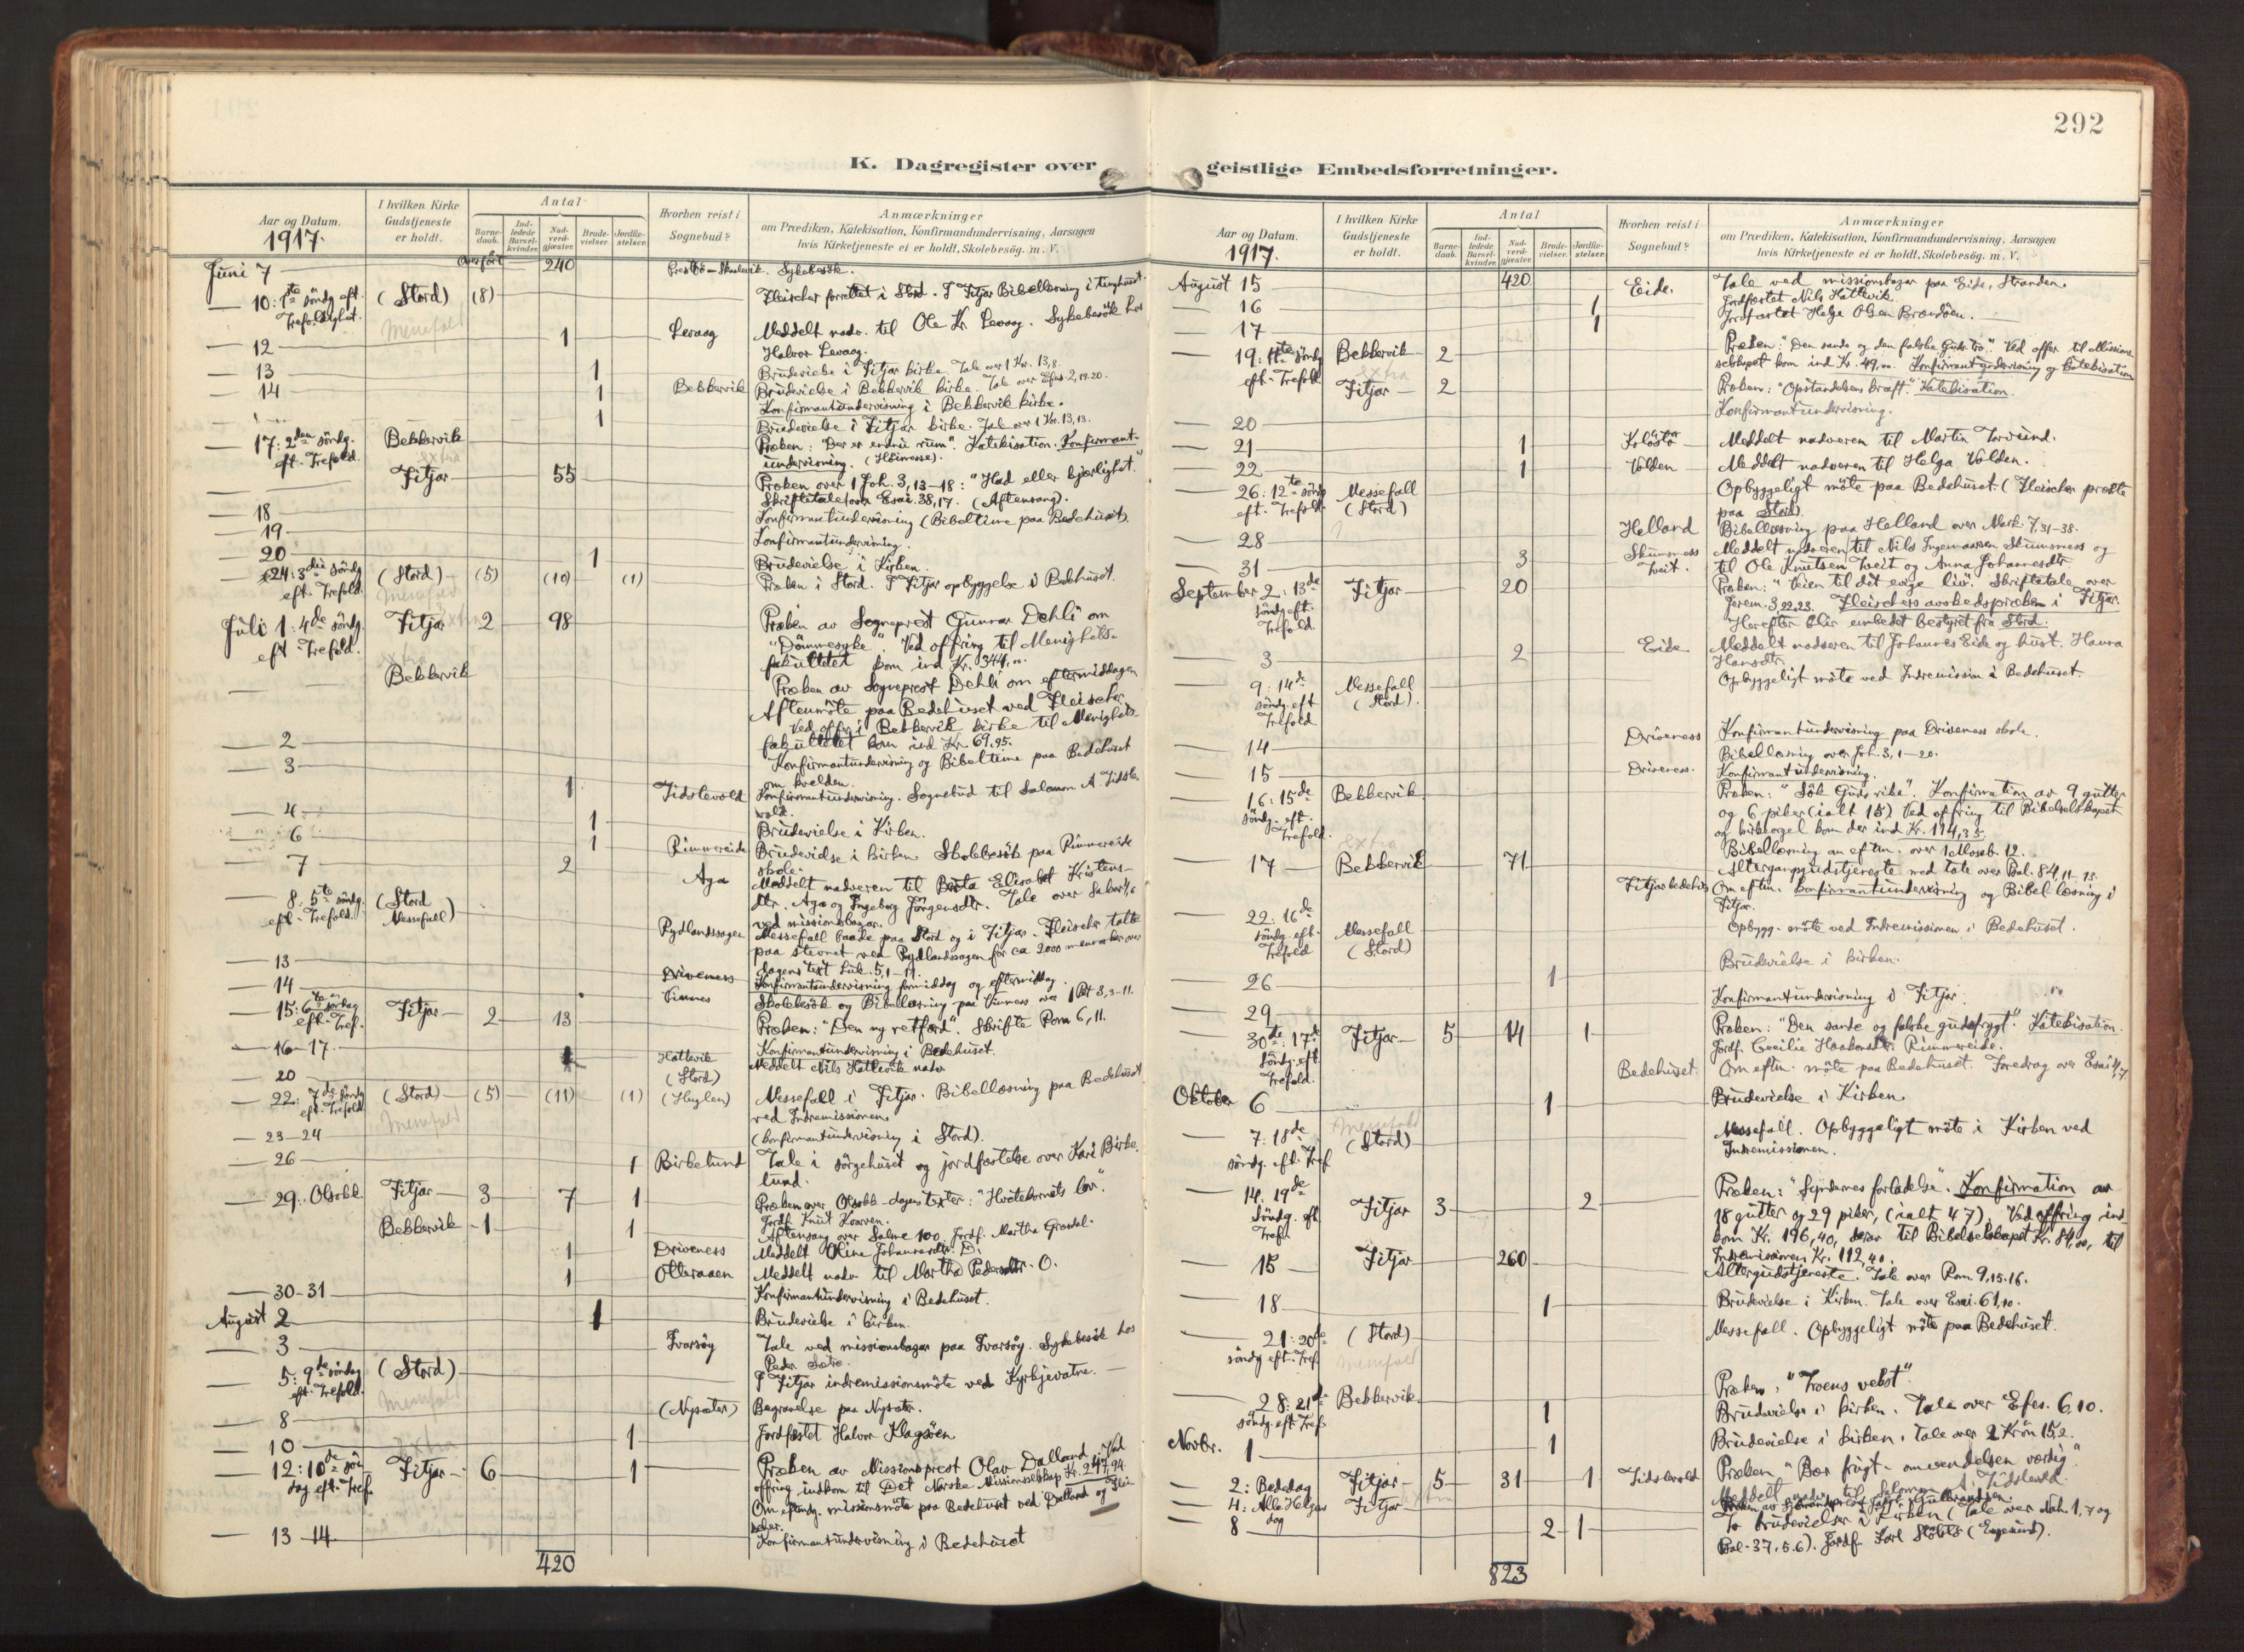 292
K. Dagregister over geistlige Embedsforretninger.
Aar og Datum.
1917.
I hvilken Kirke
Gudstjeneste
er holdt.
Antal
Barne-
daab.
Ind-
ledede
Barsel-
kvinder.
Nad-
verd-
gjæster.
Brude-
vielser.
Jordfæ-
stelser.
Hvorhen reist i
Sognebud?
Anmærkninger
om Prædiken, Katekisation, Konfirmandundervisning, Aarsagen
hvis Kirketjeneste ei er holdt, Skolebesög. m. V.
Juni 7 Overført 240 Sykebesök.
10: 1ste söndg eft. (Stord) (8) Fleischer forrettet i Stord. I Fitjar Bibellæsning i tinghuset.
Trefoldighet. Messefald
12 1 Levaag Meddelt nadv. til Ole Kr. Levaag. Sykebesök hos
Halvor Levaag.
13 1 Brudevielse i Fitjar kirke. Tale over 1 Kor. 13,8.
14 1 Bekkervik Brudevielse i Bekkervik kirke. Tale over Efes. 2,19.20.
Konfirmantundervisning i Bekkervik kirke.
1 Brudevielse i Fitjar kirke. Tale over 1 Kor. 13,13.
17: 2den söndg. Bekkervik Præken: "Der er endnu rum". Katekisation. Konfirmant-
eft. Trefold. extra undervisning. (Høimesse).
Fitjar 55 Præken over 1 Joh. 3,13-18: "Had eller kjærlighet."
Skriftetale over Esai. 38,17. (Aftensang).
18 Konfirmantundervisning (Bibeltime paa Bedehuset).
19 Konfirmantundervisning.
20 1 Brudevielse i Kirken.
24: 3die söndg (Stord) (5) (10) (1) Præken i Stord. I Fitjar opbyggelse i Bedehuset.
eft. Trefold. Messefald
Juli 1: 4de söndg. Fitjar extra 2 98 Præken av Sogneprest Gunnar Dehli om
eft Trefold. "Dömmesyke". Ved ofring til Menighets-
fakultetet kom ind Kr. 344,00.
extra
Bekkervik Præken av Sogneprest Dehli om eftermiddagen
Aftenmöte paa Bedehuset ved Fleischer.
Ved offer i Bekkervik kirke til Menighets-
fakultetet kom ind Kr. 69,95.
2 Konfirmantundervisning og Bibeltime paa Bedehuset
om kvelden.
3 1 Tidslevold Konfirmantundervisning. Sognebud til Salomon A. Tidsle-
vold.
4 1 Brudevielse i Kirken.
6 1 Rimmereide Brudevielse i kirken. Skolebesök paa Rimmereide
skole.
7 2 Aga Meddelt nadveren til Berta Elisabet Kristens-
dtr. Aga og Ingeborg Jörgensdtr. Tale over
ved missionsbazar.
8: 5te söndg. (Stord Rydlandssagen Messefall baade paa Stord og i Fitjar. Fleischer talte
eft. Trefold. Messefall) paa stevnet ved Rydlandssagen for ca 2000 mennesker over
dagens text Luk. 5,1-11.
13 Driveness Konfirmantundervisning formiddag og eftermiddag.
14 Vinnes Skolebesök og Bibellæsning paa Vinness over 1 Pet 3,3-11.
15: 6te söndag Fitjar 2 13 Præken: "Den ny retfærd". Skrifte Rom 6,11.
eft. Tref.
16-17. Konfirmantundervisning i Bedehuset.
20 1 Hattevik Meddelt Nils Hattevik nadv.
(Stord)
22: 7de söndg (Stord) (5) (11) (1) (Huglen) Messefall i Fitjar. Bibellæsning paa Bedehuset
eft. Trefold Messefald ved Indremissionen.
23-24 (Konfirmantundervisning i Stord).
26 1 Birkelund Tale i sörgehuset og jordfæstelse over Kari Birke-
lund.
29. Olsokk Fitjar 3 7 1 Præken over Olsokk-dagens texter: "Hvetekornets lov".
Jordf. Knut Koarven.
Bekkervik 1 1 Aftensang over Salme 100. Jordf. Martha Grosdal.
1 Driveness Meddelt Oline Johannesdtr. D.
1 Otteraaen Meddelt nadv. til Martha Pedersdtr. O.
30-31 Konfirmantundervisning i Bedehuset.
August 2 1 Brudevielse i kirken.
3 Ivarsöy Tale ved missionsbazar paa Ivarsöy. Sykebesök hos
Peder Sætre.
5: 9de söndag (Stord) I Fitjar indremissionsmöte ved Kyrkjevatne.
eft. Trefold. Messefald
8 (Nysæter) Begravelse paa Nysæter.
10 1 Jordfæstet Halvor Klagsöen
12: 10de sön- extra Fitjar 6 1 Præken av Missionsprest Olav Dalland. Ved
dag eft. Tref. ofring indkom til Det Norske Missionsselskap Kr. 247,94.
Om eftmdg. missionsmöte paa Bedehuset ved Dalland og Flei-
scher.
13-14 Konfirmantundervisning i Bedehuset
420
Aar og Datum.
1917.
I hvilken Kirke
Gudstjeneste
er holdt.
Antal
Barne-
daab.
Ind-
ledede
Barsel-
kvinder.
Nad-
verd-
gjæster.
Brude-
vielser.
Jordfæ-
stelser.
Hvorhen reist i
Sognebud?
Anmærkninger
om Prædiken, Katekisation, Konfirmandundervisning, Aarsagen
hvis Kirketjeneste ei er holdt, Skolebesög. m. V.
August 15 420 Eide. Tale ved missionsbazar paa Eide, Stranden.
16 1 Jordfæstet Nils Hattevik.
17 1 Jordfæstet Helge Olsen Brandöen.
19: 11te söndg Bekkervik 2 Præken: "Den sande og den falske Guds tro". Ved offer til Missions-
eft. Trefold. extra selskapet kom ind Kr. 49,00. Konfirmantundervisning og Katekisation
Fitjar 2 Præken: "Opstandelsens kraft". Katekisation.
20 Konfirmantundervisning.
21 1 Kolöstö Meddelt nadveren til Martin Torsund.
22 1 Volden Meddelt nadveren til Helga Volden.
26: 12te söndg Messefall Opbyggeligt möte paa Bedehuset. (Fleischer prækte
eft. Trefold. (Stord) paa Stord).
28 Helland Bibellæsning paa Helland over Mark. 7,31-38.
31 3 Skumsness Meddelt nadveren til Nils Ingemarsen Skumsness og
Tveit. til Ole Knutsen Tveit og Anna Johannesdtr.
September 2: 13de Fitjar 20 Præken: "Veien til det evige liv". Skriftetale over
söndg eft. Jerem. 3,22.23. Fleischers avskedspræken i Fitjar.
Trefold. Herefter blir embedet bestyret fra Stord.
3 2 Eide Meddelt nadveren til Johannes Eide og hust. Hanna
Hansdtr.
9: 14de Messefall Opbyggeligt möte ved Indremission i Bedehuset.
söndg. eft (Stord).
Trefold
14 Driveness Konfirmantundervisning paa Driveness skole.
Bibellæsning over Joh. 3,1-20.
15 Driveness. Konfirmantundervisning.
16: 15de Bekkervik Præken: "Sök Guds rike". Konfirmation av 9 gutter
söndg. eft. og 6 piker (ialt 15) Ved ofring til Bibelselskapet
Trefold. og kirkeorgel kom der ind Kr. 114,35.
Bibellæsning om eftm. over 1 Moseb. 12.
extra
17 Bekkervik 71 Altergangsgudstjeneste med tale over Sal. 84,11-13.
Fitjar bedehus Om eftm. Konfirmantundervisning og Bibellæsning i
Fitjar.
22: 16de Messefall Opbygg. möte ved Indremissionen i Bedehuset.
söndg. eft. (Stord)
Trefold
26 1 Brudevielse i kirken.
29 Konfirmantundervisning i Fitjar.
30de: 17de Fitjar 5 14 1 Præken: "Den sande og falske gudsfrygt." Katekisation.
söndg. eft. Jordf. Cecilie Haakonsdtr. Rimmereide.
Trefold. Bedehuset. Om eftm. möte paa Bedehuset. Foredrag over Esai
Oktober 6 1 Brudevielse i Kirken.
7: 18de Messefald (Stord) Messefall. Opbyggeligt möte i Kirken ved
söndg. eft. Tref Indremissionen.
14. 19de Fitjar 3 2 Præken: "Syndernes forladelse". Konfirmation av
söndg. eft 18 gutter og 29 piker, (ialt 47). Ved ofring ind-
Tref. kom Kr. 196,40, derav til Bibelselskapet Kr. 84,00, til
Indremissionen Kr. 112,40.
15 Fitjar 260 Altergudstjeneste. Tale over Rom 9,15.16.
18 1 Brudevielse i Kirken. Tale over Esai. 61,10.
21: 20de (Stord) Messefall. Opbyggeligt möte paa Bedehuset.
söndg eft. Tref Messefald
28: 21de Bekkervik Præken: "Troens vekst".
söndg. eft Tref. 1 Brudevielse i kirken. Tale over Efes. 6,10.
Novbr. 1 1 Brudevielse i kirken. Tale over 2 Krön 15,2.
2: Bededag Fitjar 5 31 1 Tidslevold Præken "Bær frugt - omvendelsen værdig".
Meddelt nadv. til Salomon A. Tidslevold.
4: Alle Helgens Fitjar extra Præken av Gulbrandsen.
dag
8 2 1 To brudevielser i Kirken (Tale over Nah. 1,7 og
Sal. 37,5.6). Jordf. Karl (Engesund).
823